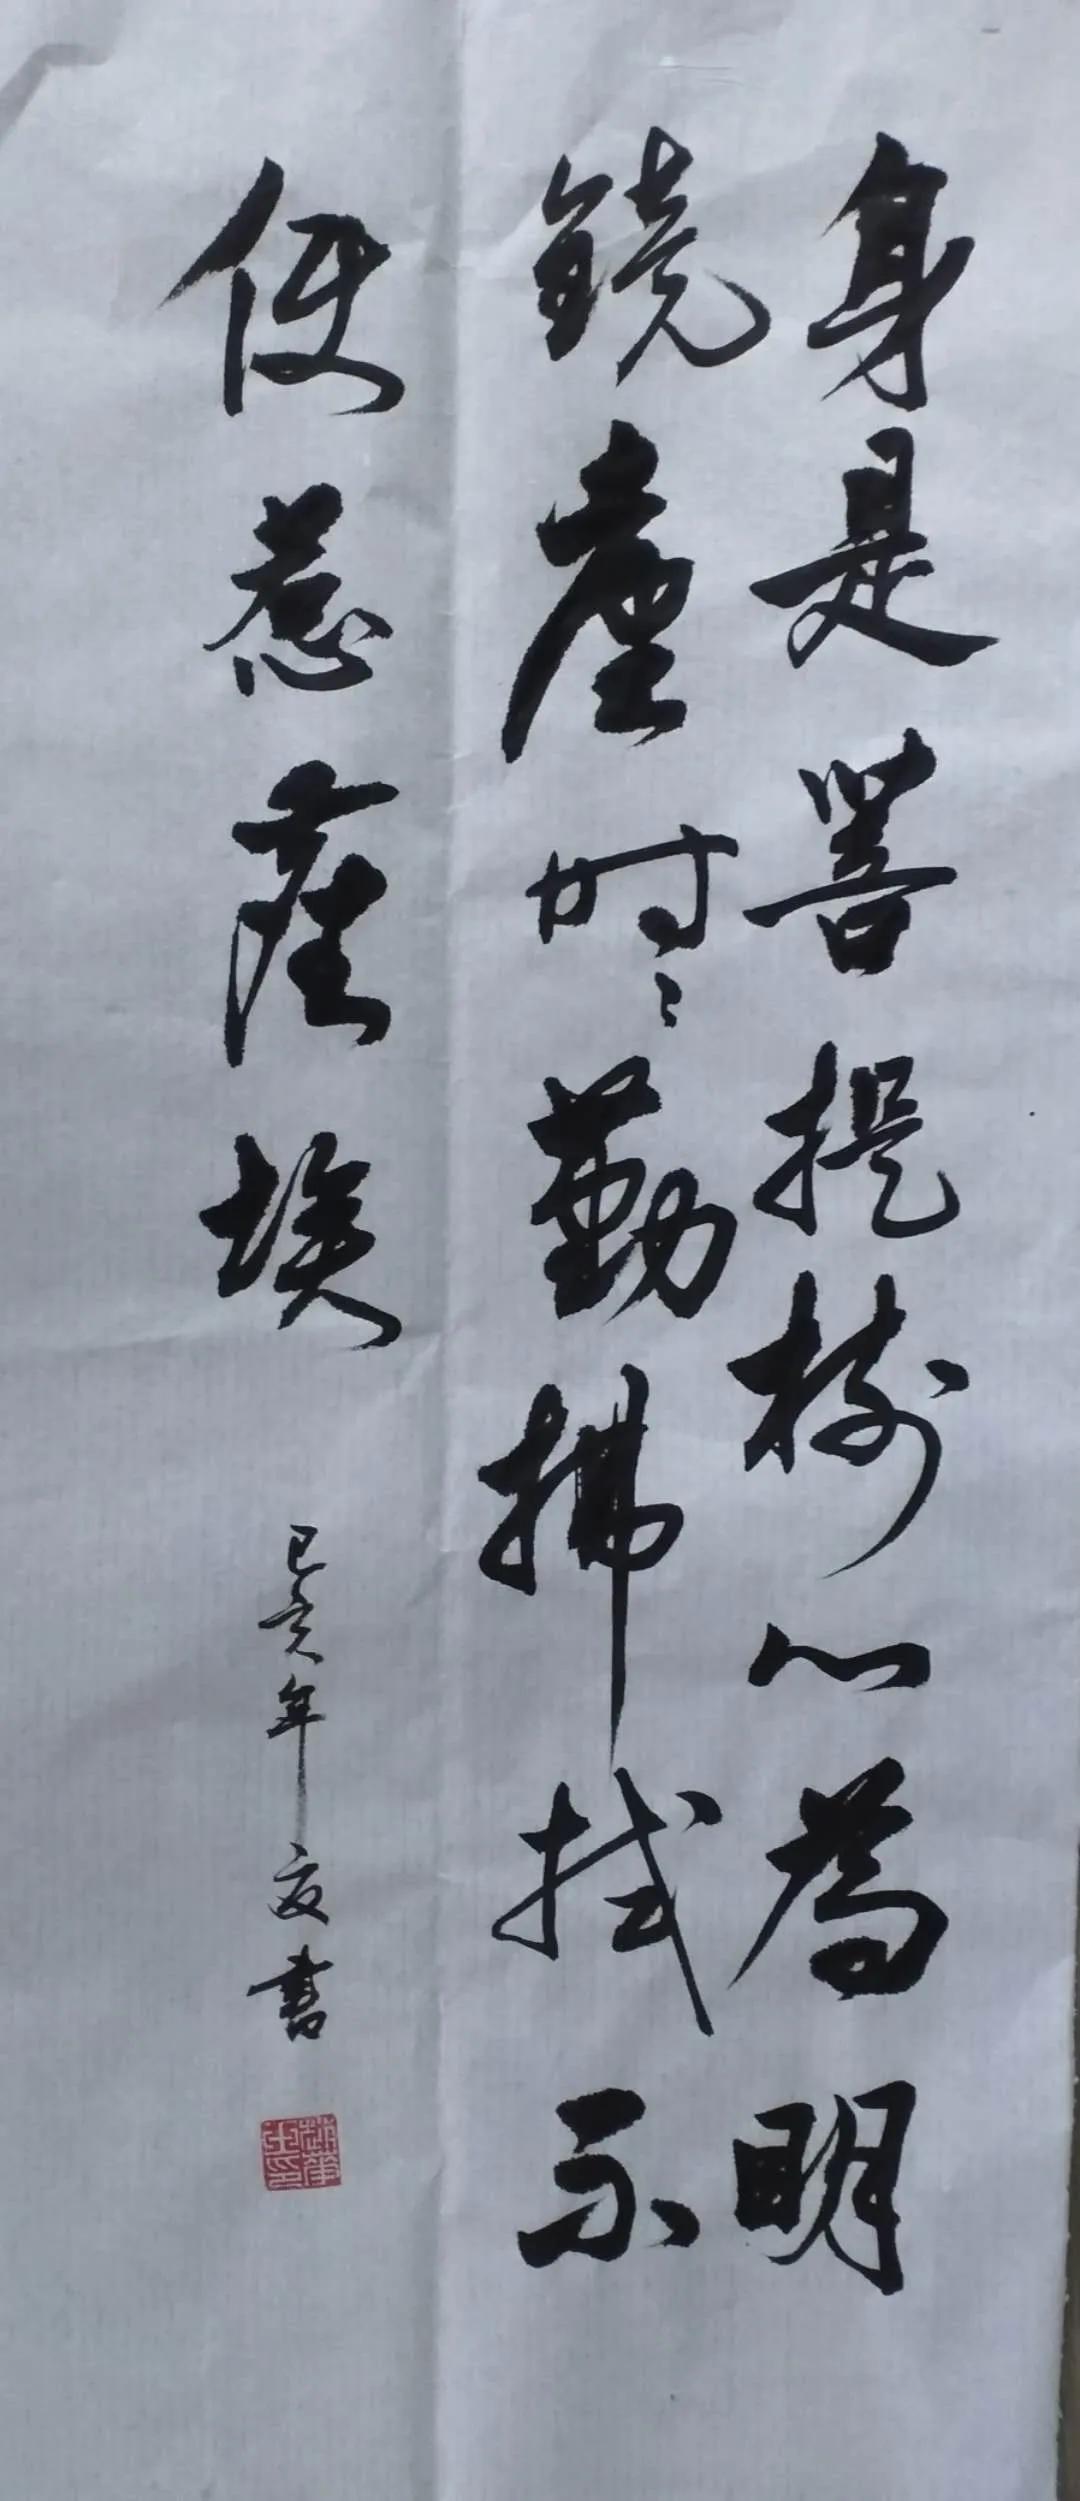 身是菩提樹心為明
鏡臺时〻勤拂拭不
使惹塵埃
己亥年夏書